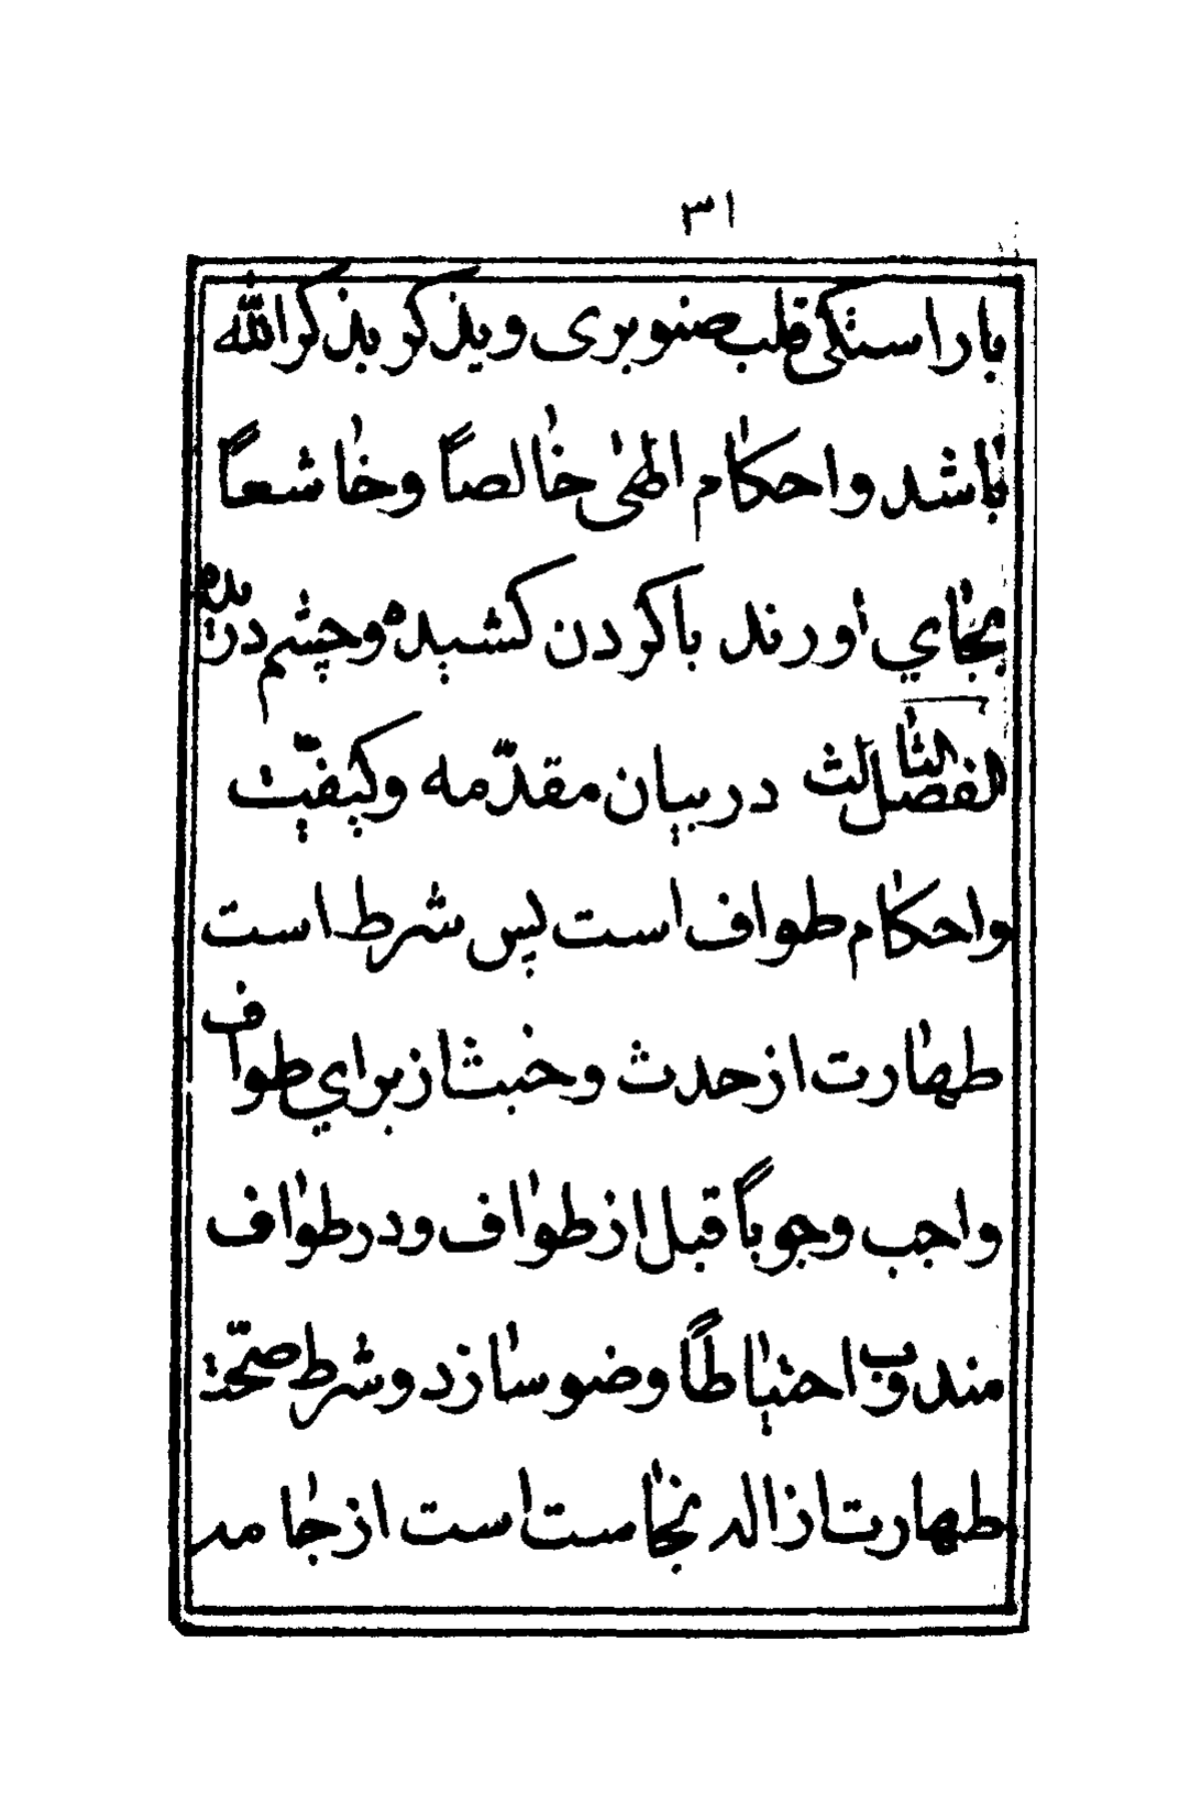 ٣١
باراستکی قلب صنوبری ویذکر بذکر الله
باشد واحکام الهی خالصاً وخاشعاً
بجاي اورند باکردن کشیده وچشم
الفصل الثالث در بیان مقدّمه وکیفیّت
واحکام طواف است پس شرط است
طهارت از حدث وخبث از براي طواف
واجب وجوباً قبل از طواف ودر طواف
مندوب احتیاطاً وضو سازد وشرط صحّة
طهارت ازاله نجاست است از جامه